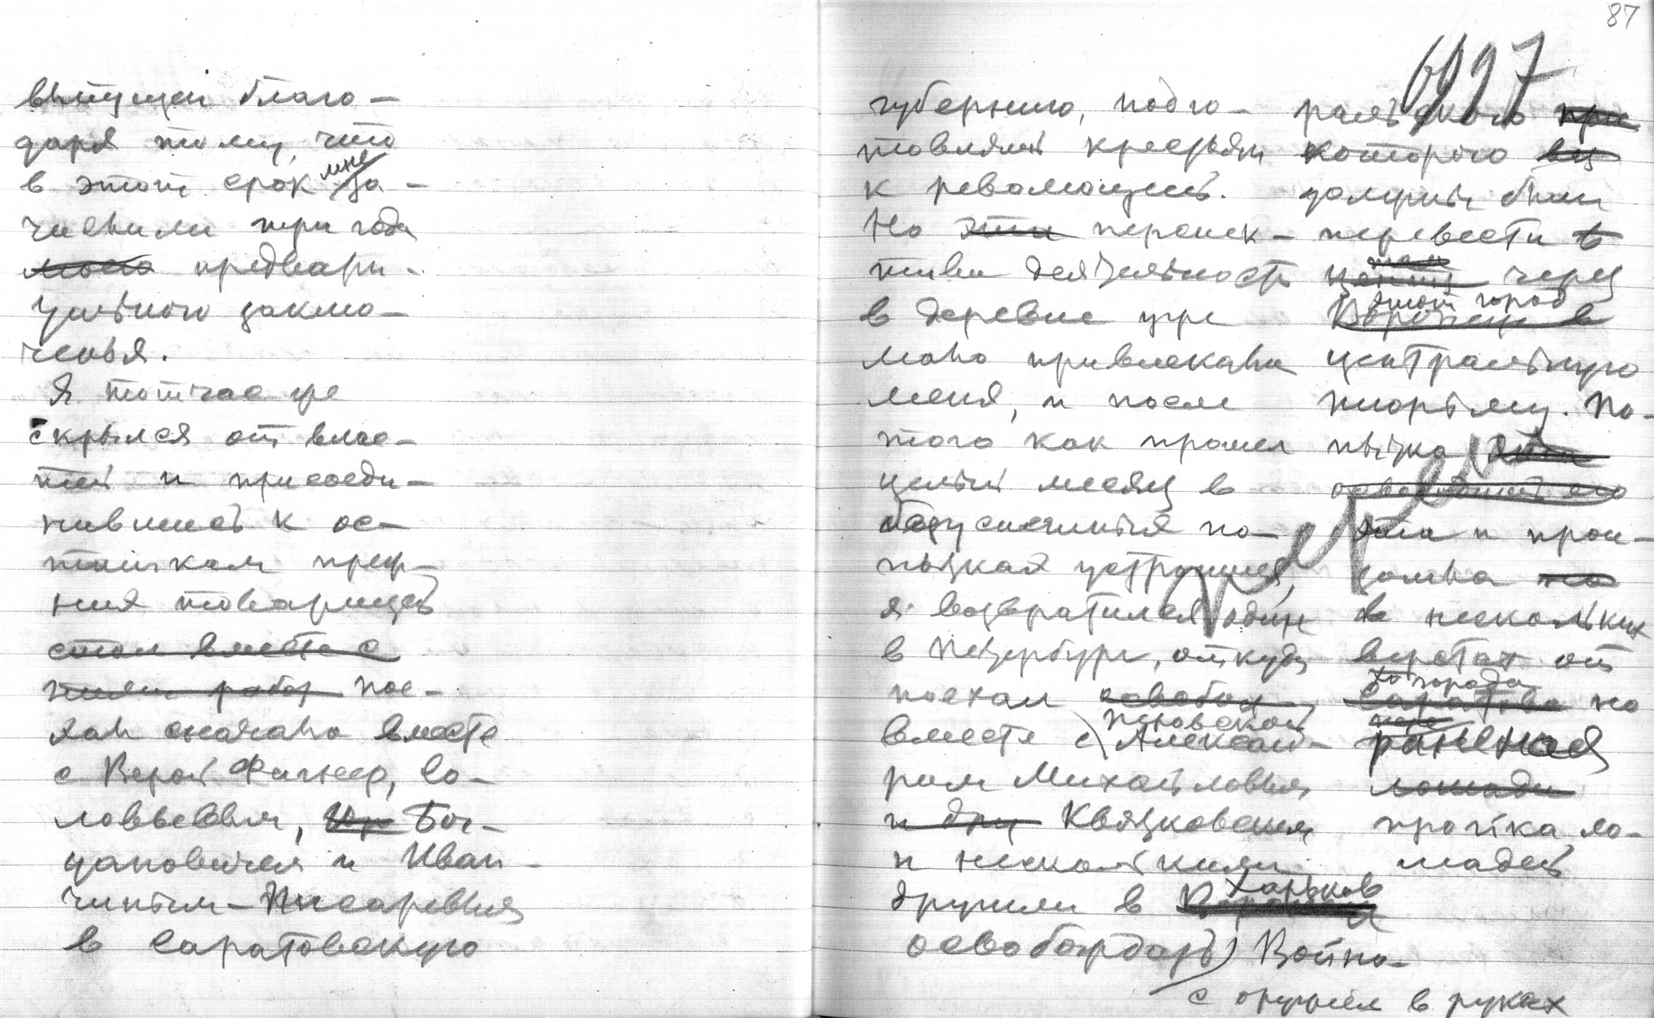 выпущен благо-
даря тому, что
в этот срок мне за-
числили три года
моего предвари-
тельного заклю-
ченья.
Я тотчас же
скрылся от влас-
тей и присоеди-
нившись к ос-
таткам преж-
ния товарищей
стал вместе с
ними работ пое-
хал сначала вместе
с Верой Фигнер, Со-
ловьевым, Ив Бог-
дановичем и Иван-
чиным-Писаревым
в Саратовскую
87
6997
губернию, подго-
товлять крестьян
к революции.
Но эти перспек-
тивы деятельность
в деревне уже
мало привлекала
меня, и после
того как прошел
целый месяц в
безуспешных по-
пытках устроиться,
я возвратился один
в Петербург, откуда
поехал освобож
вместе с Перовской Алексан-
дром Михайловым,
и дру Квятковским
и несколькими
другими в Харьков
освобождать Война-
с оружием в руках
ральского при
которого вез
должны были
перевести в
там через
этот город Воронеж в
центральную
тюрьму. По-
пытка
освободить его
эта и прои-
зошла на
в нескольких
верстах от
города Саратова но
раненая
лошади
тройка ло-
шадей